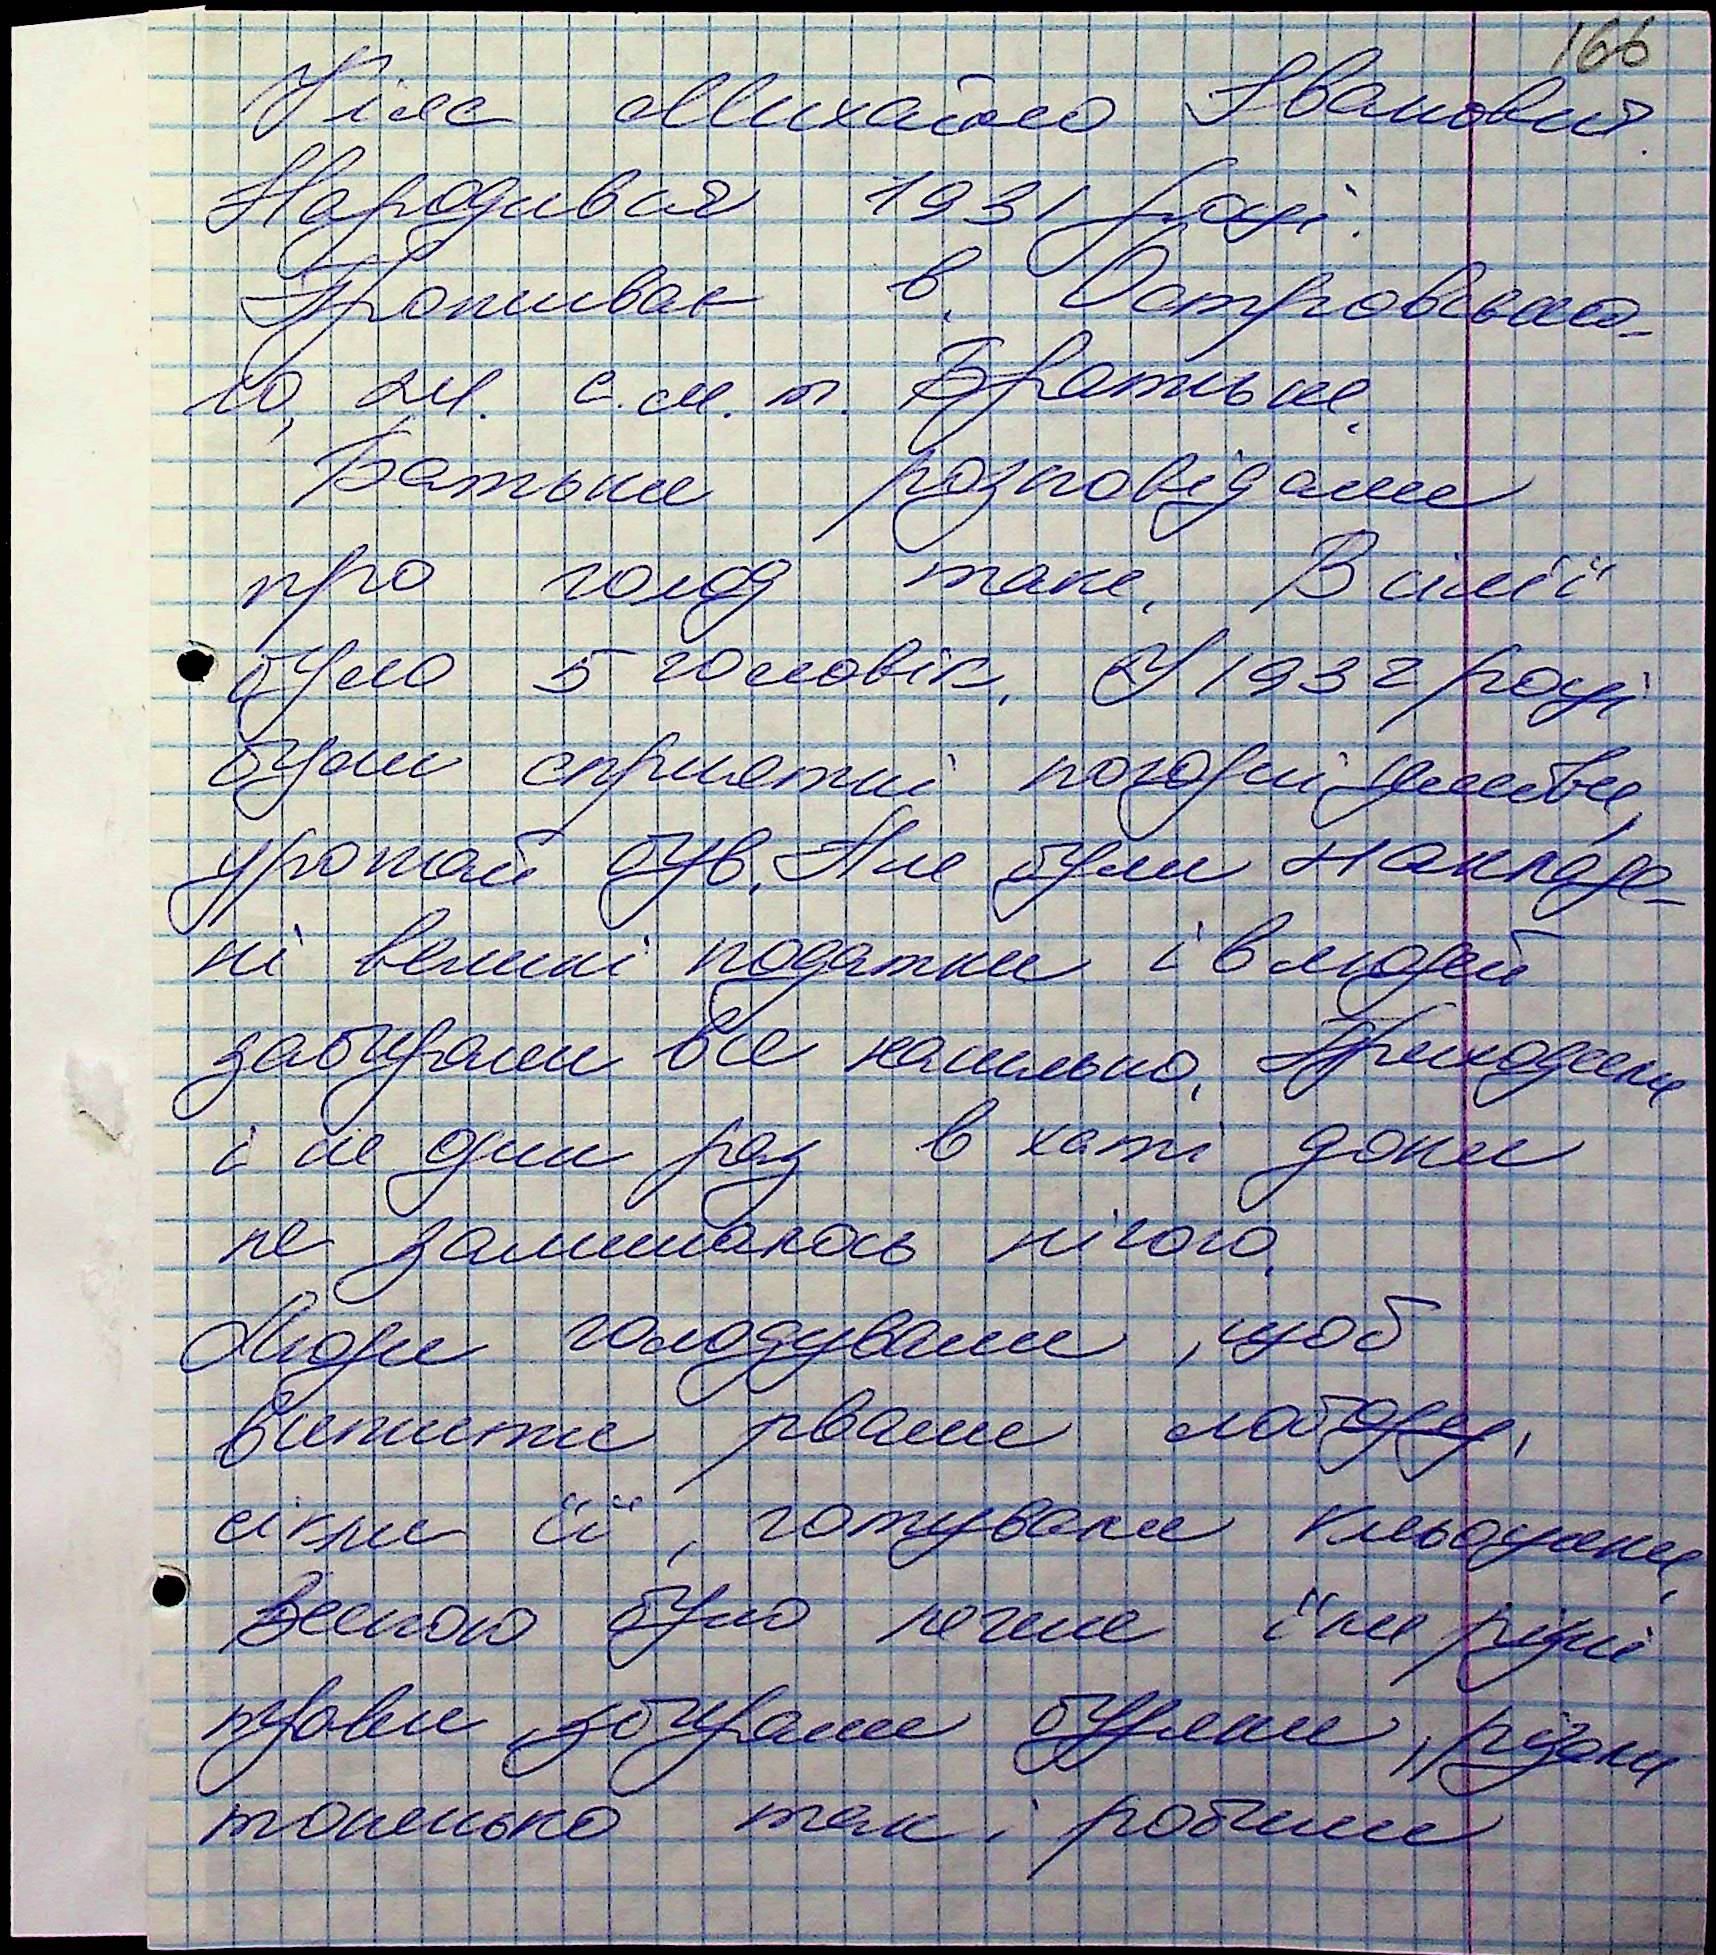 166
Михайло Іванович.
Народився 1931 році.
Проживає в. Островсько-
го, 24. с.м.т. Братське.
Батьки розповідали
про голод таке. В сім'ї
було 5 чоловік. У 1932 році
були сприятні погодні умови,
урожай був. Але були накладе-
ні великі податки і в людей
забирали все насильно. Приходили
і не один раз в хаті доки
не залишилось нічого.
Люди голодували, щоб
вижити рвали лободу,
сікли її, готували кльоцики,
весною було легше їли різні
трави, збирали буряки, різали
тоненько так і робили